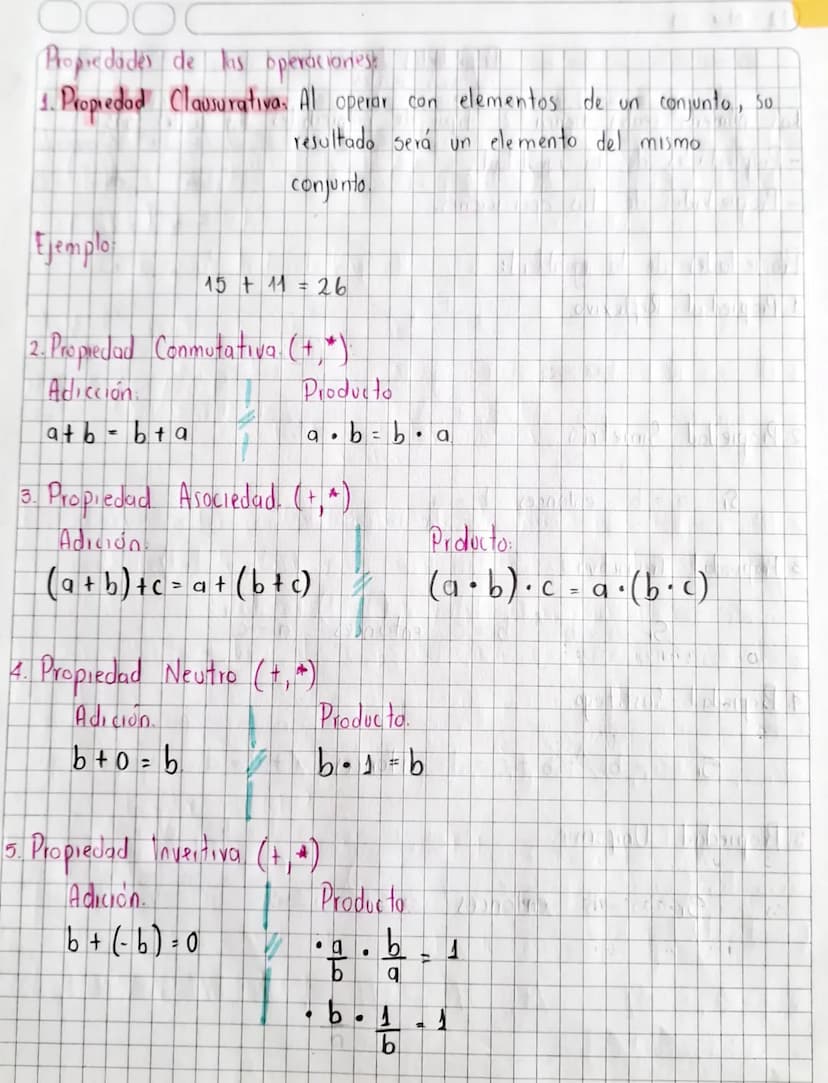 Propiedades de las operaciones:
1. Propiedad Clausurativa. Al operar con elementos de un conjunto, so
resultado será un elemento del mismo
conjunto.
Ejemplo:
15 + 11 = 26
2. Propiedad Conmutativa. (+,*)
Adicción. Producto
a + b = b + a a • b = b • a
3. Propiedad Asociedad. (+,*)
Adición. Prducto:
(a + b) + c = a + (b + c) (a • b) • c = a • (b • c)
4. Propiedad Neutro (+,*)
Adición. Producto.
b + 0 = b. b • 1 = b
5. Propiedad Invertiva (+,*)
Adición. Producto
b + (-b) = 0 • a/b • b/a = 1
• b • 1/b = 1